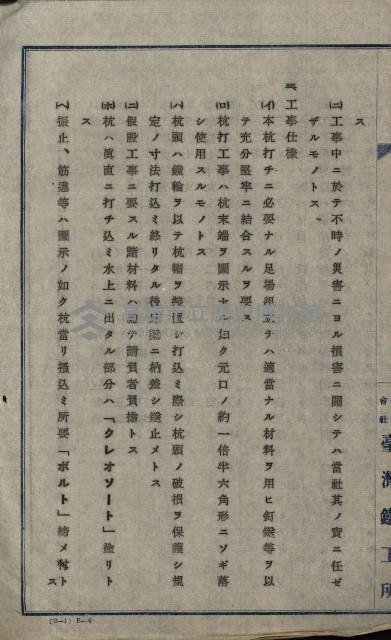 ス
(ニ)工事中ニ於テ不時ノ災害ニヨル損害ニ關シテハ當社其ノ責ニ任ゼ
ザルモノトス
三、工事仕樣
(イ)本杭打チニ必要ナル足場組立テハ適當ナル材料ヲ用ヒ釘鎹等ヲ以
テ充分堅牢ニ結合スルヲ要ス
(ロ)杭打工事ハ杭末端ヲ圖示セル如ク元口ノ約一倍半六角形ニソギ落
シ使用スルモノトス
(ハ)杭頭ハ鐵輪ヲ以テ杭帽ヲ裝置シ打込ミ際シ杭頭ノ破損ヲ保護シ規
定ノ寸法打込ミ終リタル後梁ニ枘差シ鎹止メトス
(ニ)假設工事ニ要スル諸材料ハ總テ請負者負擔トス
(ホ)杭ハ眞直ニ打チ込ミ水上ニ出タル部分ハ「クレオソート」塗リト
ス
(ヘ)振止、筋違等ハ圖示ノ如ク杭當リ摺込ミ所要「ボルト」締メ付ト
ス
會社
臺灣鐵工所
(2—1) B—4